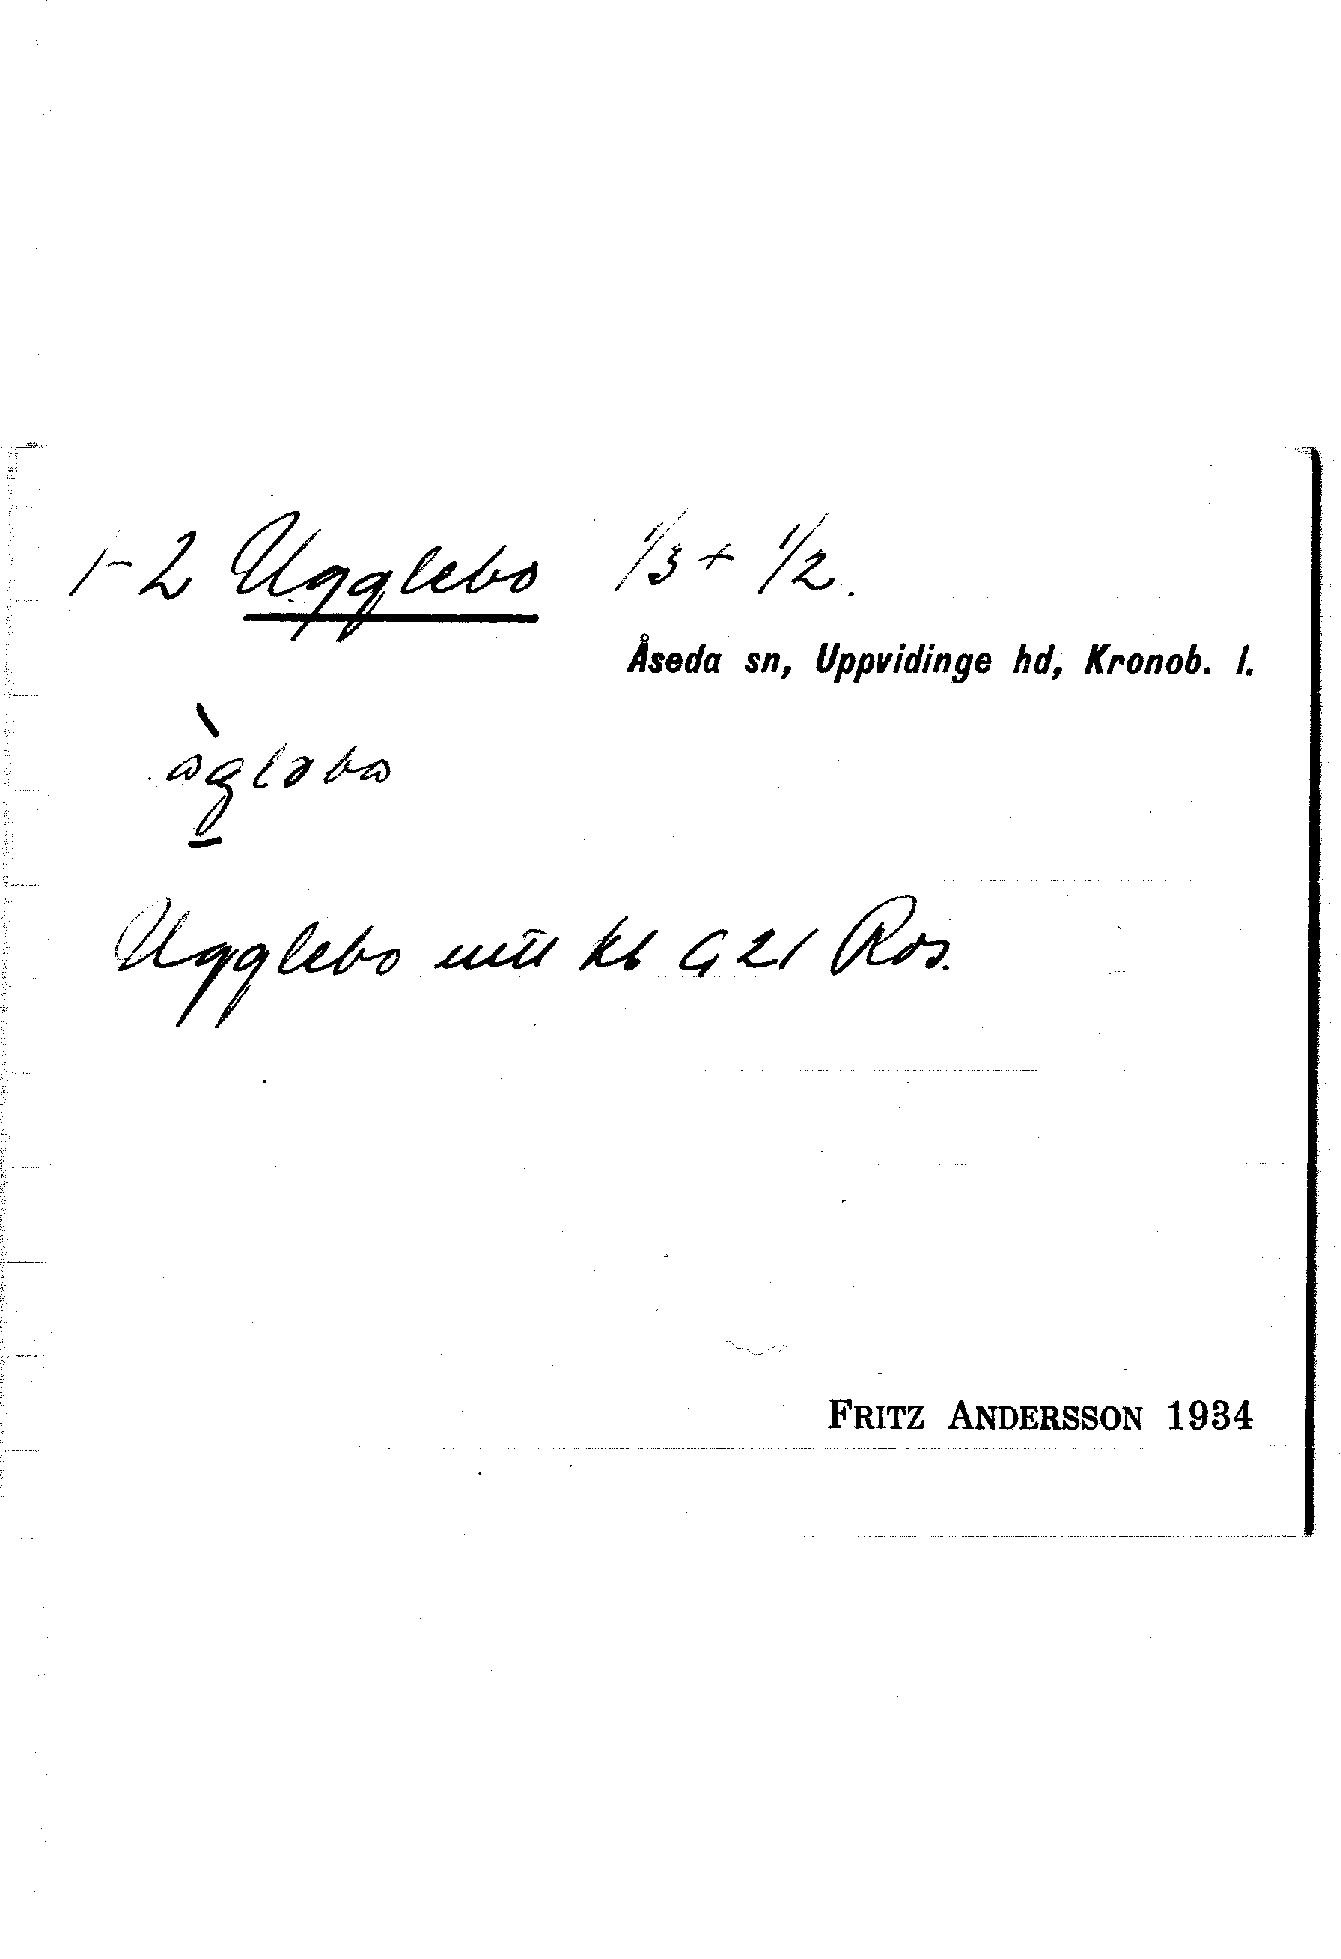 1-2 Ugglebo 1/3 + 1/2.
Åseda sn, Uppvidinge hd, Kronob. l.
Ugglebo kb G 21 Ros.
FRITZ ANDERSSON 1934